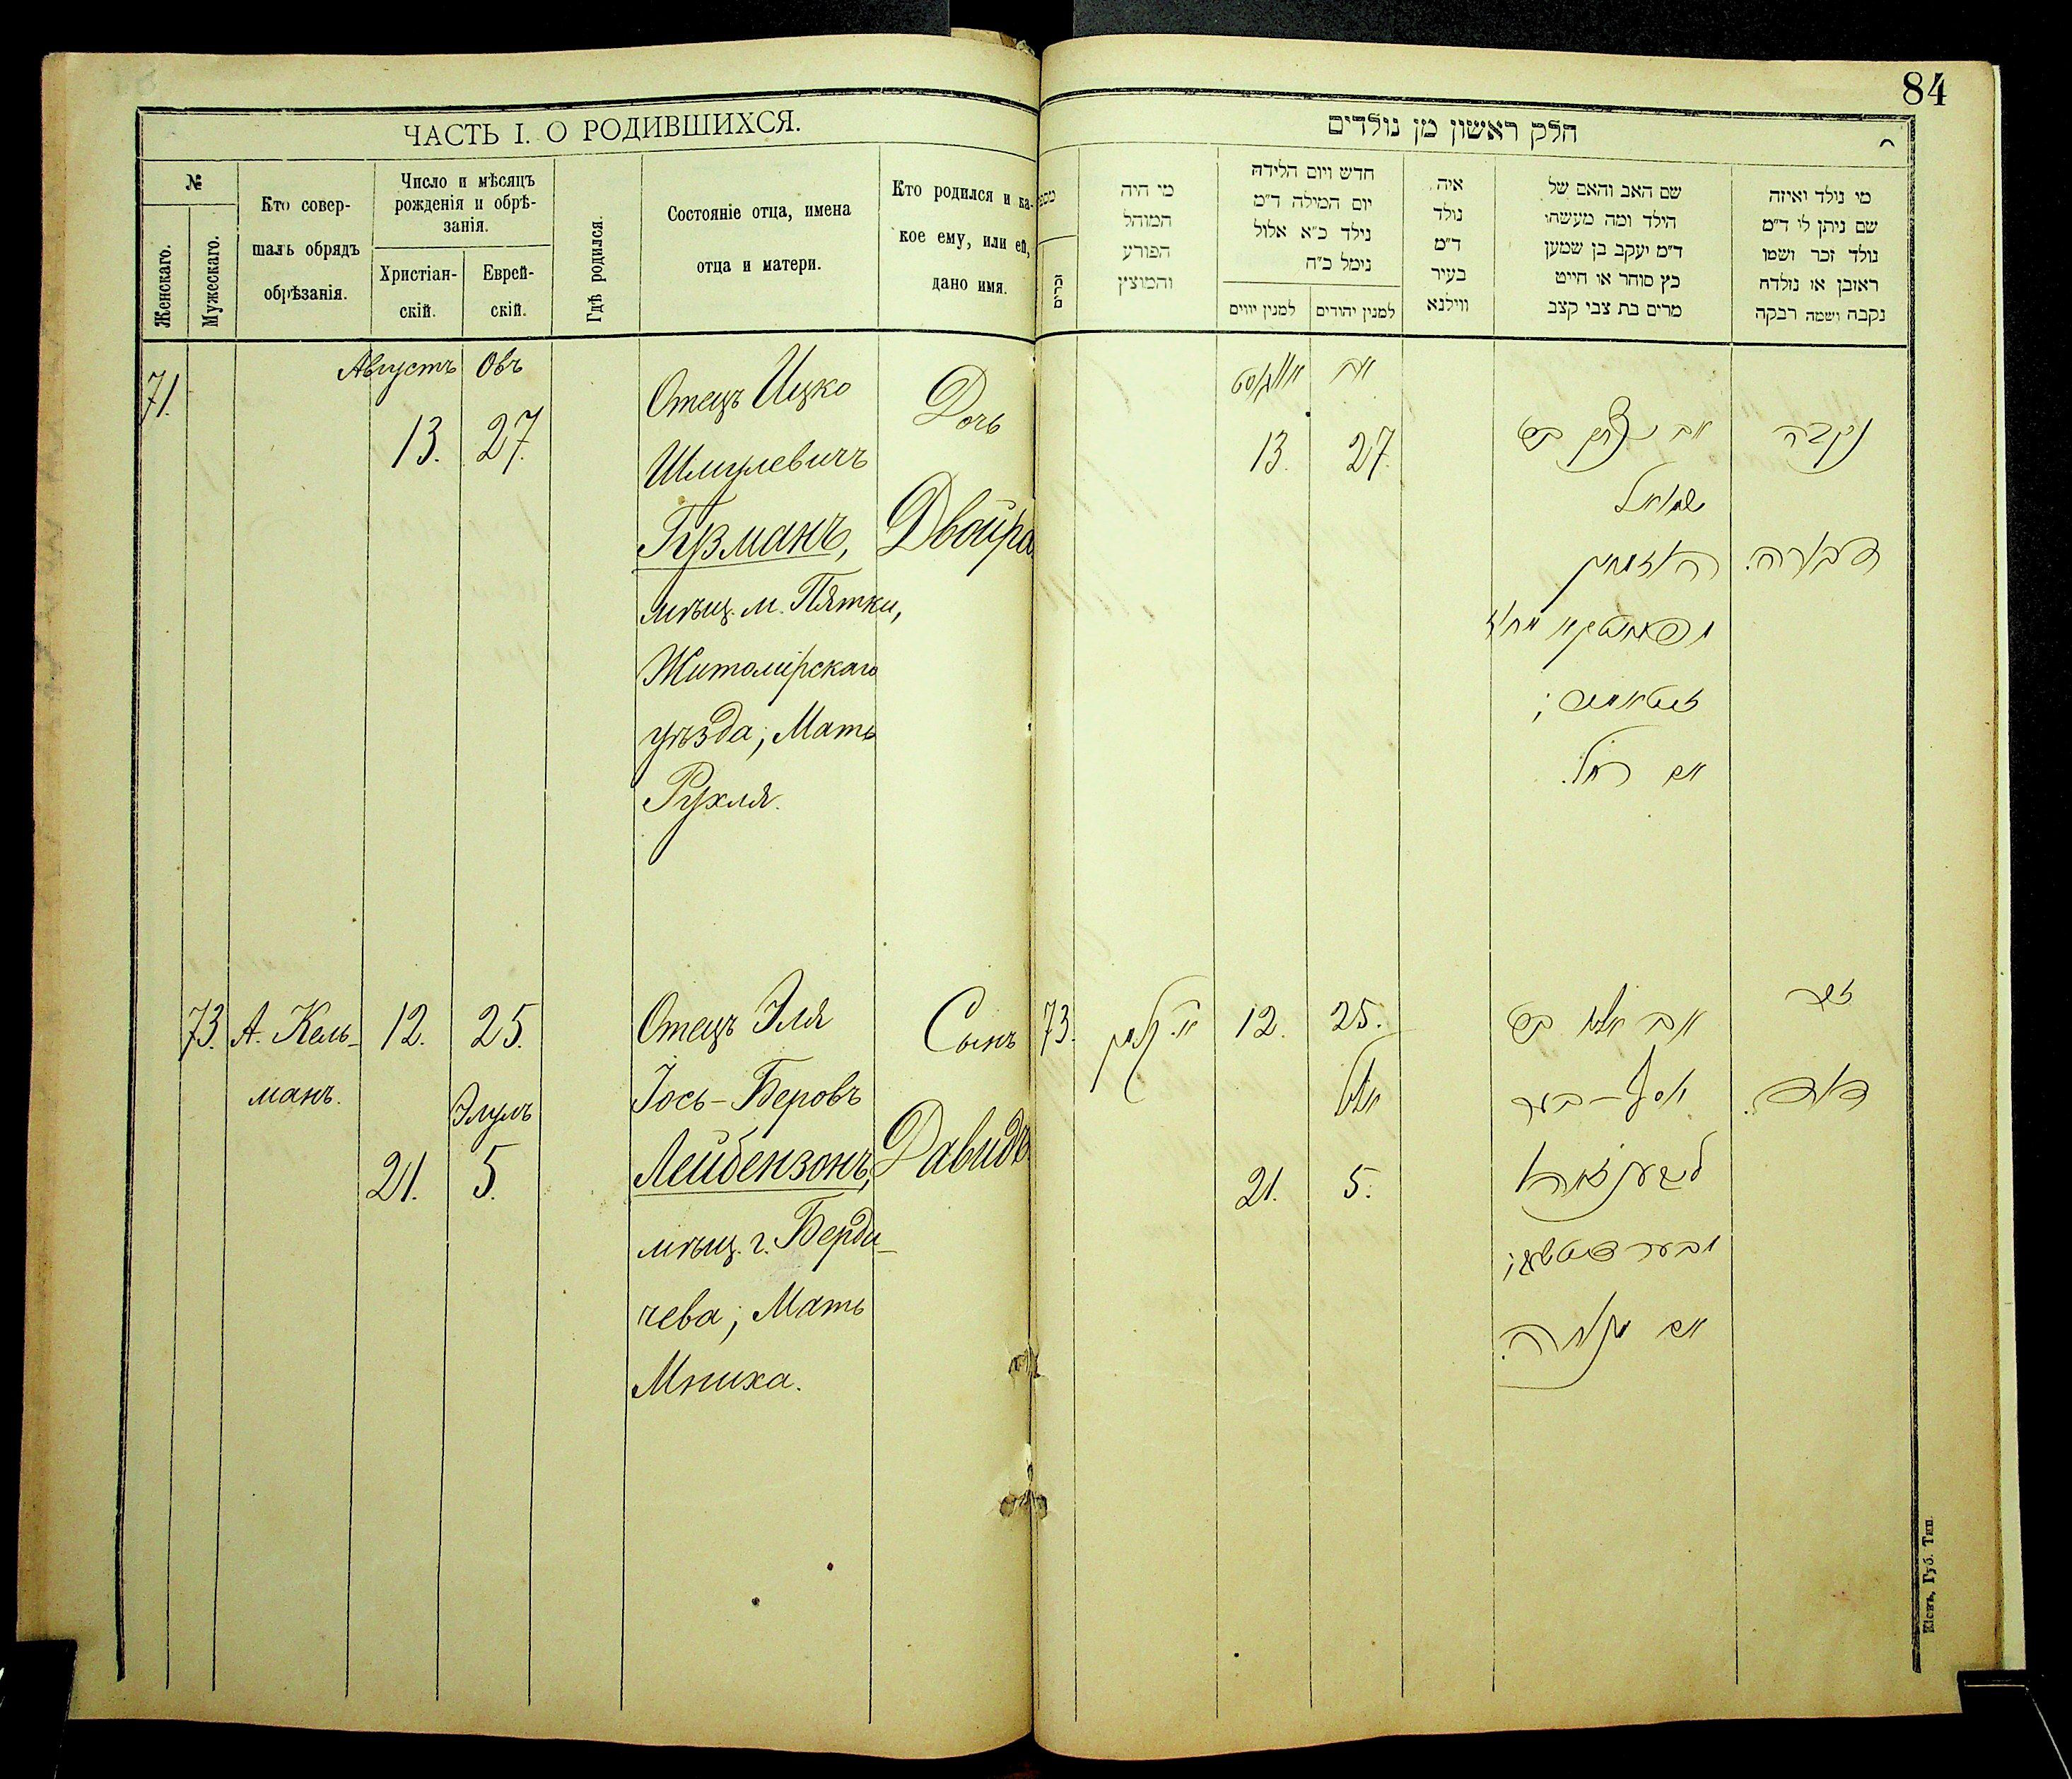 84
ЧАСТЬ I. О РОДИВШИХСЯ.
№
Женскаго.
Мужескаго.
Кто совер-
шалъ обрядъ
обрѣзанія.
Число и мѣсяцъ
рожденія и обрѣ-
занія.
Христіан-
скій.
Еврей-
скій.
Гдѣ родился.
Состояніе отца, имена
отца и матери.
Кто родился и ка-
кое ему, или ей,
дано имя.
71.
Августъ Овъ
13. 27.
Отецъ Ицко
Шмулевичъ
Гузманъ,
мѣщ. м. Пятки,
Житомірскаго
уѣзда; Мать
Рухля.
Дочь
Двойра
73. А. Кель-
манъ.
12. 25.
Элулъ
21. 5.
Отецъ Эля
Іось-Беровъ
Лейбензонъ,
мѣщ. г. Берди-
чева; Мать
Мниха.
Сынъ
Давидъ
חלק ראשון מן נולדים
זכרים
מי היה
המוהל
הפורע
והמוצץ
חדש ויום הלידה
יום המילה ד״מ
נילד כ״א אלול
נימל כ״ח
למנין יווים
למנין יהודים
איה
נולד
ד״מ
בעיר
ווילנא
שם האב והאם של
הילד ומה מעשהו
ד״מ יעקב בן שמען
כץ סוחר או חייט
מרים בת צבי קצב
מי נולד ואיזה
שם ניתן לו ד״מ
נולד זכר ושמו
ראובן או נולדה
נקבה ושמה רבקה
אויגוסט אב
13. 27.
אב יצחק ב״ר
שמואל
זיטאמיר;
אם רחל.
נקבה
דבורה.
73.
א. קלמן
12. 25.
אלול
21. 5.
אב אליו ב״ר
יוסף-בער
לייבענזאהן
זכר
דוד.
Кіевъ, Губ. Тип.